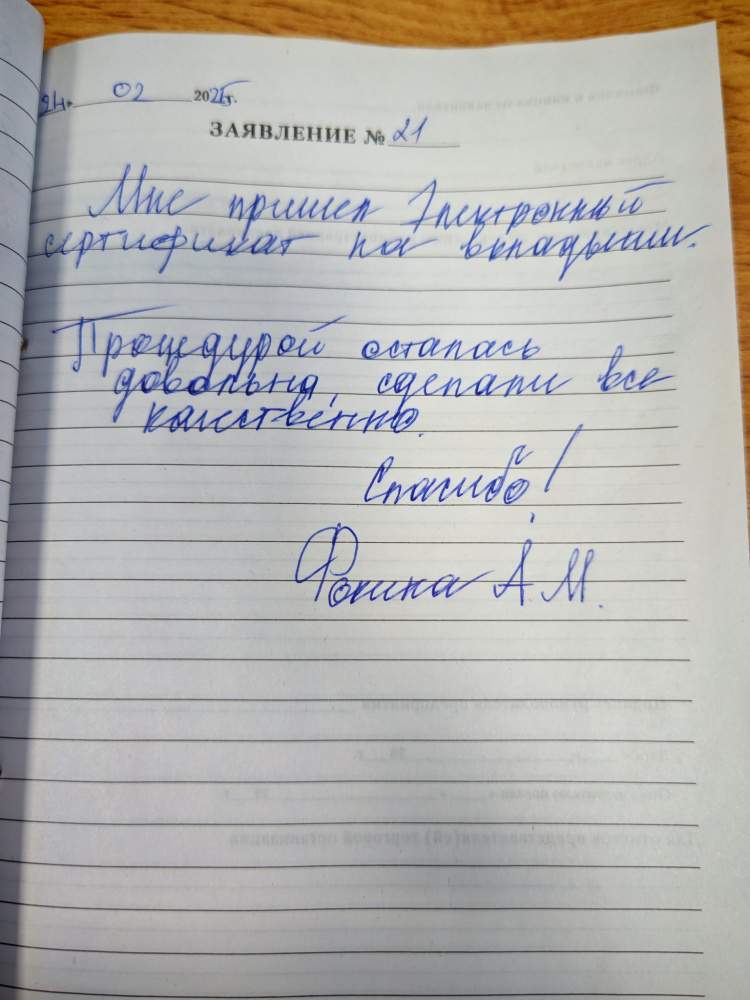 24 02 2025г.
ЗАЯВЛЕНИЕ № 21
Мне пришел Электронный
сертификат на вкладыши.
Процедурой осталась
довольна, сделали все
качественно.
Спасибо!
Фокина А.М.